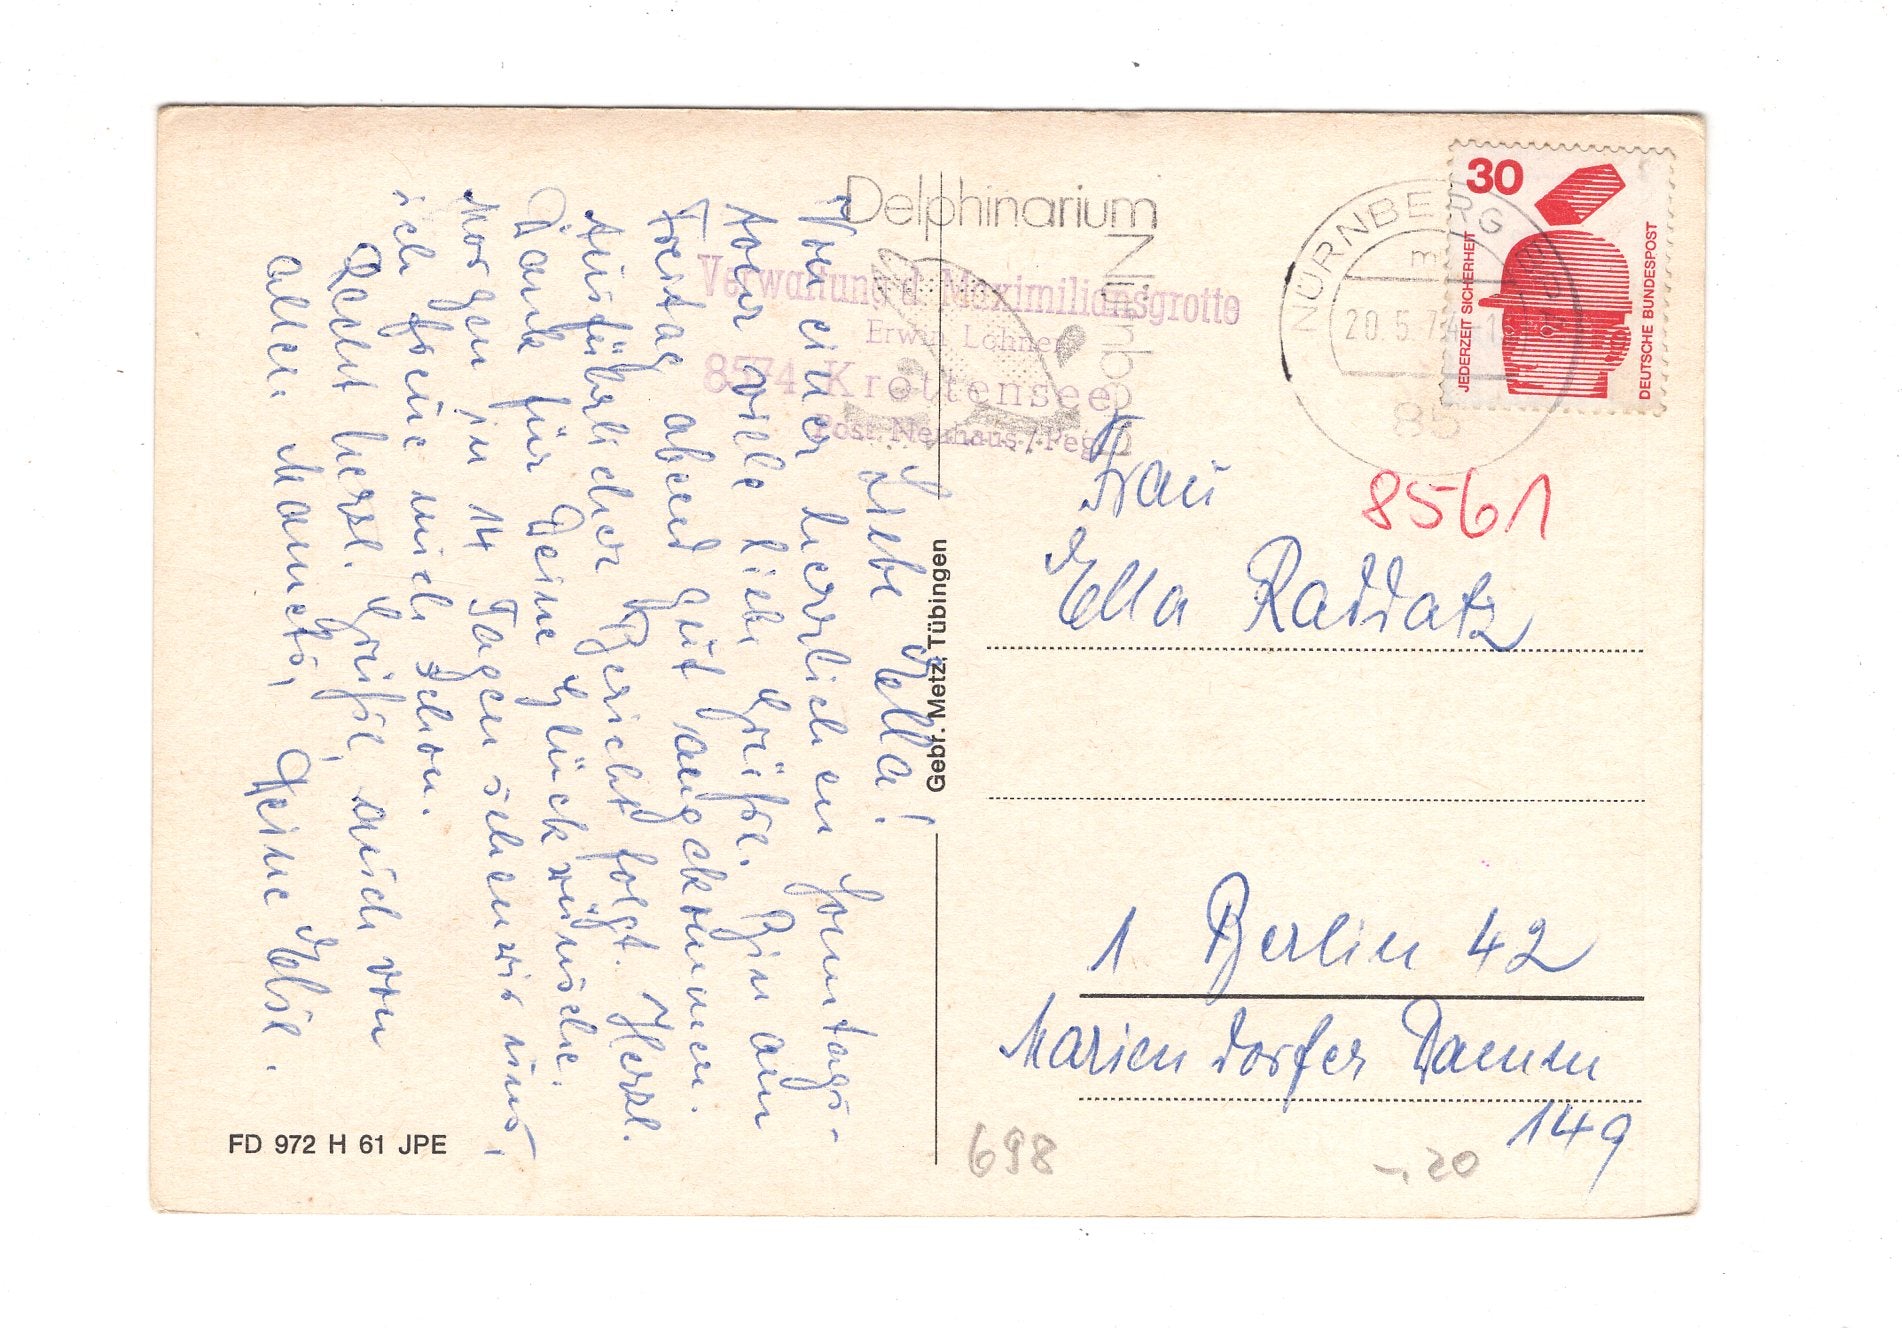 Liebe Ella!
Von einer herrlichen Sonntags-
tour viele liebe Grüße. Bin am
Freitag abend gut angekommen.
Ausführlicher Bericht folgt. Herzl.
Dank für Deine Glückwünsche.
Morgen in 14 Tagen sehen wir uns,
ich freue mich schon.
Recht herzl. Grüße, auch von
allen Manets, Deine Else.
FD 972 H 61 JPE
Gebr. Metz, Tübingen
Delphinarium
Nürnberg
Verwaltung d. Maximiliansgrotte
Erwin Lohner
8574 Krottensee
Post Neuhaus/Peg.
NÜRNBERG
m
20.5.74-18
85
30
JEDERZEIT SICHERHEIT
DEUTSCHE BUNDESPOST
8561
Frau
Ella Raddatz
1 Berlin 42
Mariendorfer Damm
149
698
-.20